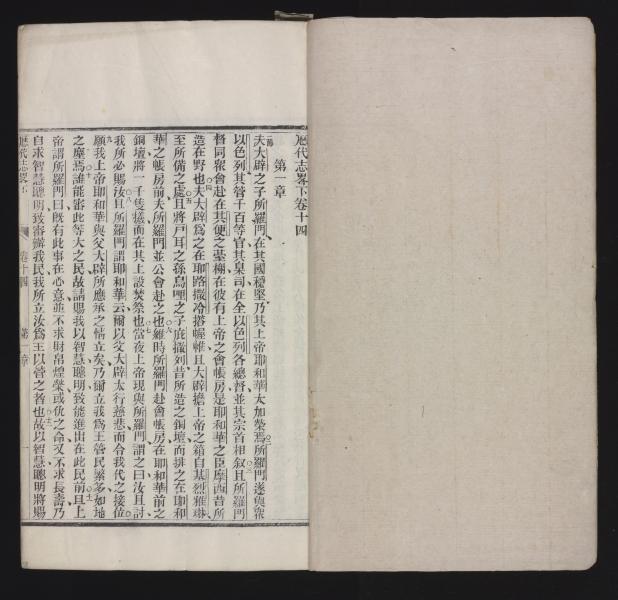 厯代志畧下卷十四
第一章
一節夫大辟之子所羅門、在其國穩堅、乃其上帝耶和華太加榮焉、○二所羅門遂與衆
以色列其管千百等官、其臬司、在全以色列各總督並其宗首相叙、○三且所羅門
督同衆會赴在其便之墓棚、在彼有上帝之會帳房、是耶和華之臣摩西昔所
造在野也、○四夫大辟爲之在耶路撒冷搭幄帷、且大辟擔上帝之箱自基烈雅琳、
至所備之處、○五且將戶耳之孫烏哩之子庇撒列昔所造之銅壇而排之在耶和
華之帳房前、夫所羅門並公會赴之也、○六維時所羅門赴會帳房在耶和華前之
銅壇、將一千隻牲而在其上設焚祭也、○七當夜上帝現與所羅門謂之曰、汝且討
我所必賜汝、○八且所羅門謂耶和華云、爾以父大辟太行慈悲、而令我代之接位、
○九願我上帝耶和華與父大辟所應承之情立矣、乃爾立我爲王管民繁多如地
之塵焉、○十誰能審此等大之民、故請賜我以智慧聰明、致能進出在此民前、○十一且上
帝謂所羅門曰、旣有此事在心意、並不求財帛煌榮、或仇之命、又不求長壽、乃
自求智慧聰明、致審辦我民、我所立汝爲王以管之者也、○十二故以智慧聰明將賜
厯代志畧下
卷十四
第一章
一